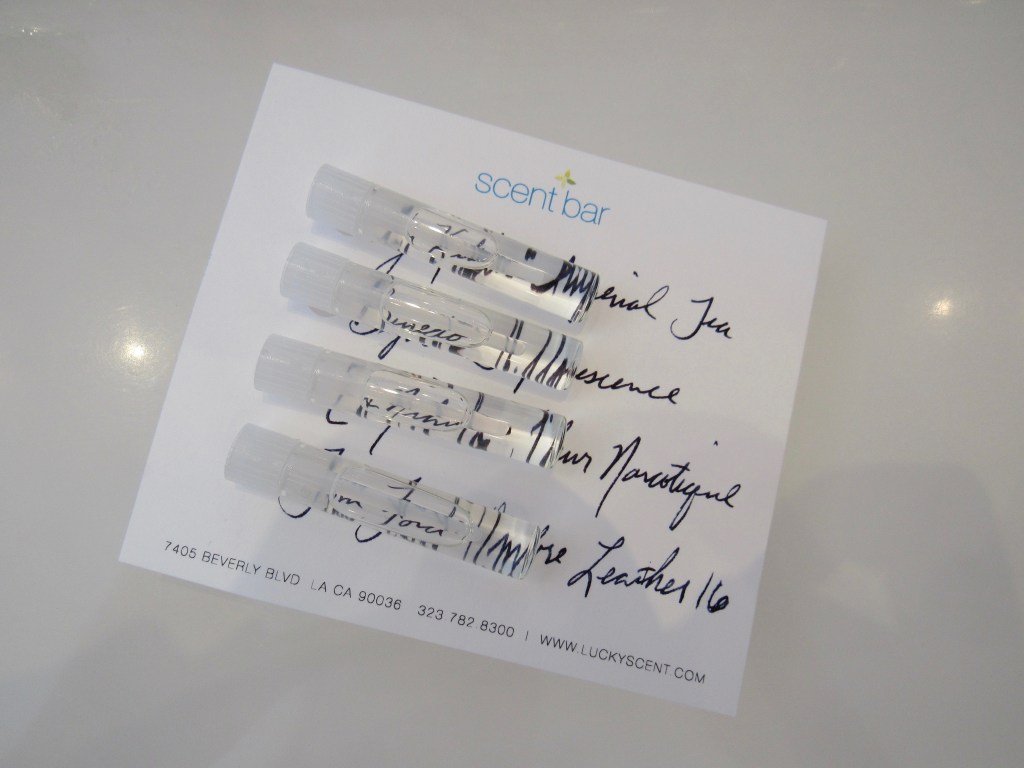 scent bar
Imperial Tea
Effervescence
Fleur Narcotique
Tom Ford Ombre Leather 16
7405 BEVERLY BLVD LA CA 90036 323 782 8300 | WWW.LUCKYSCENT.COM